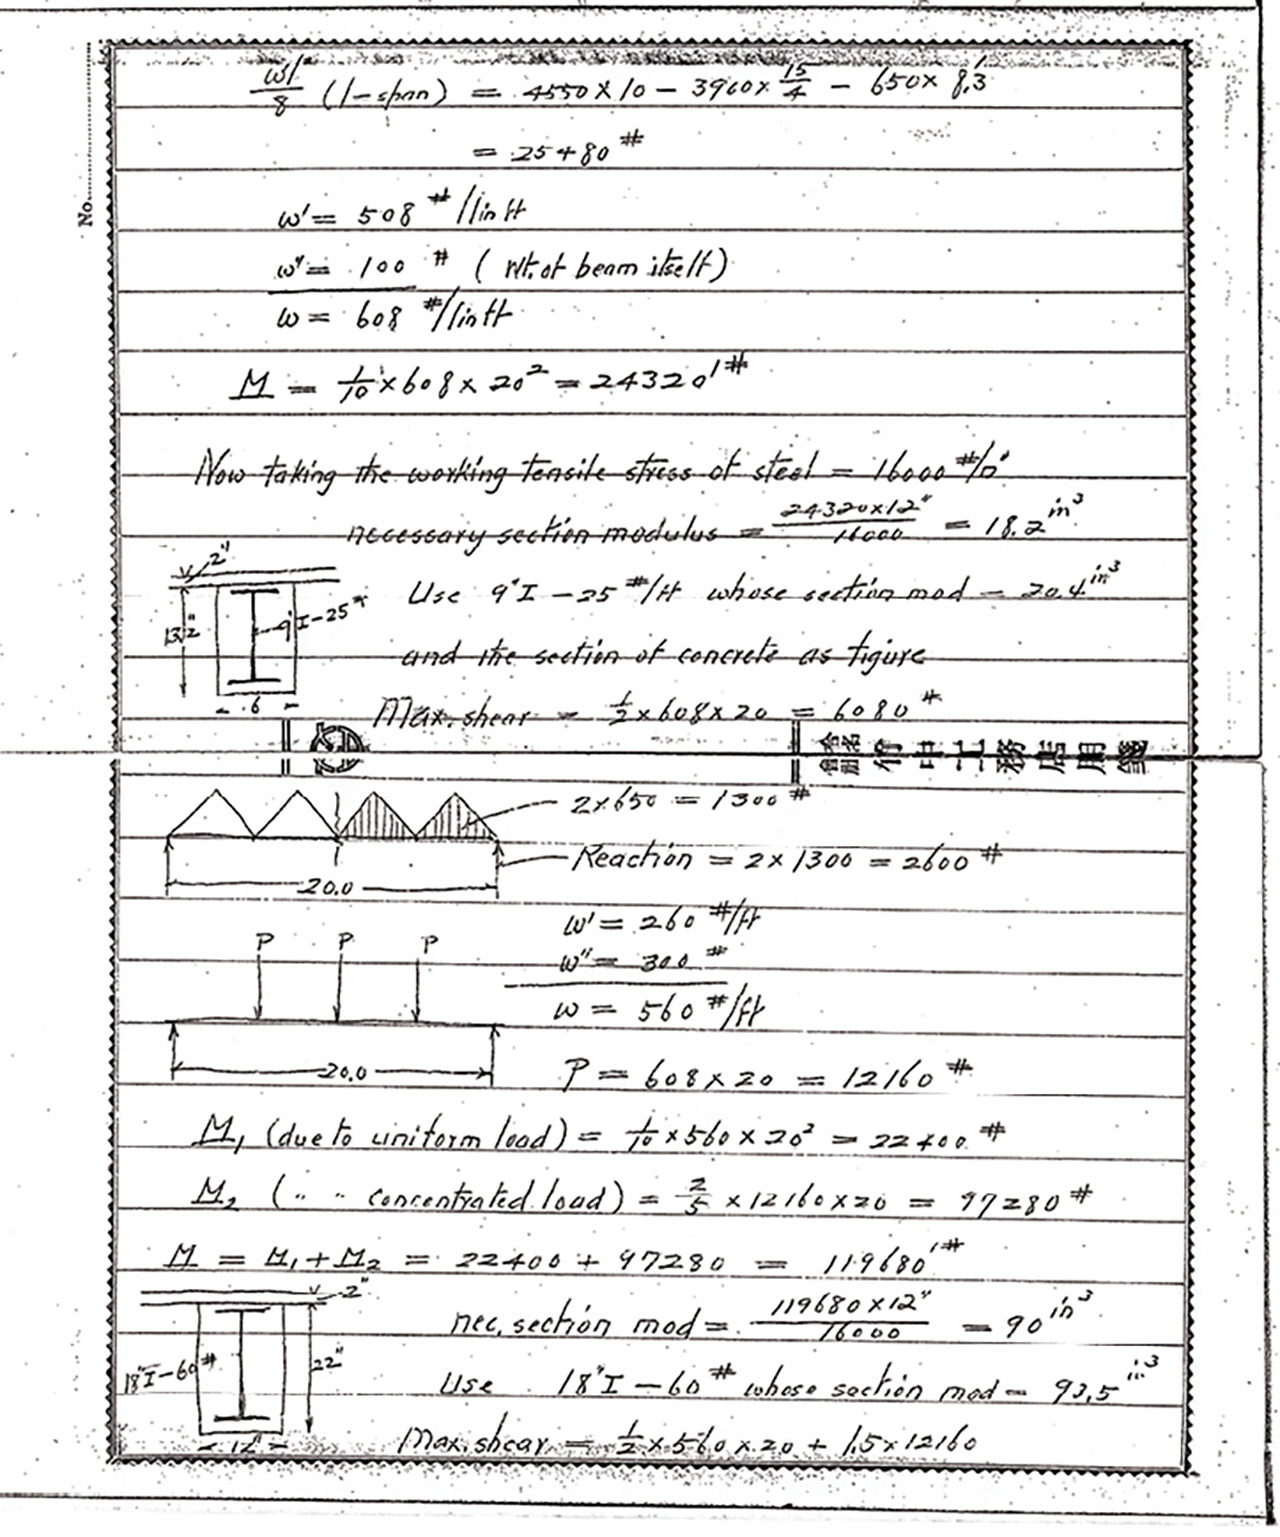 wl²/8 (l-span) = 4550×10 - 3960×15/4 - 650×8.3'
= 25480 #
w' = 508 #/lin ft
w'' = 100 # (Wt. of beam itself)
w = 608 #/lin ft
M = 1/10 × 608 × 20² = 24320'#
Now taking the working tensile stress of steel = 16000 #/□"
necessary section modulus = 24320×12"/16000 = 18.2 in³
2"
Use 9"I - 25 #/ft whose section mod = 20.4 in³
9"I-25#
and the section of concrete as figure
6
Max. shear = 1/2 × 608 × 20 = 6080 #
合名会社 竹中工務店用箋
No.
2×650 = 1300 #
Reaction = 2 × 1300 = 2600 #
20.0
w' = 260 #/ft
P P P
w'' = 300 #
w = 560 #/ft
20.0
P = 608 × 20 = 12160 #
M₁ (due to uniform load) = 1/10 × 560 × 20² = 22400 #
M₂ (" " concentrated load) = 2/5 × 12160 × 20 = 97280 #
M = M₁ + M₂ = 22400 + 97280 = 119680'#
2"
nec. section mod = 119680×12"/16000 = 90 in³
18"I-60#
22"
Use 18"I - 60# whose section mod = 93.5 in³
12"
Max. shear = 1/2 × 560 × 20 + 1.5 × 12160